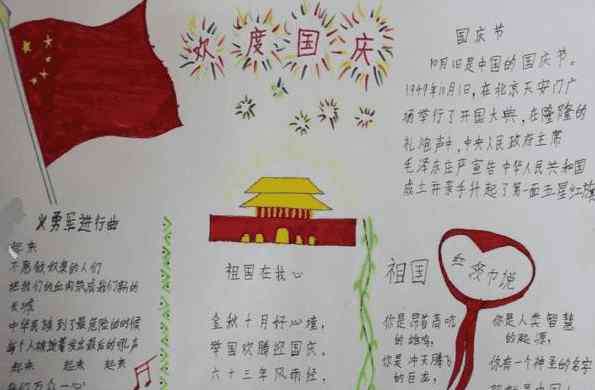 欢度国庆
国庆节
10月1日是中国的国庆节。
1949年11月1日,在北京天安门广
场举行了开国大典,在隆隆的
礼炮声中,中央人民政府主席
毛泽东庄严宣告中华人民共和国
成立并亲手升起了第一面五星红旗
义勇军进行曲
起来
不愿做奴隶的人们
把我们的血肉筑成我们新的
长城
中华民族到了最危险的时候
每个人被迫着发出最后的吼声
起来 起来 起来
我们万众一心
祖国在我心
金秋十月好心境,
举国欢腾迎国庆,
六十三年风雨经,
祖国
你是昂首高吭
的雄鸡,
你是冲天腾飞
的巨龙,
你是人类智慧
的起源,
你有一个神圣的名字